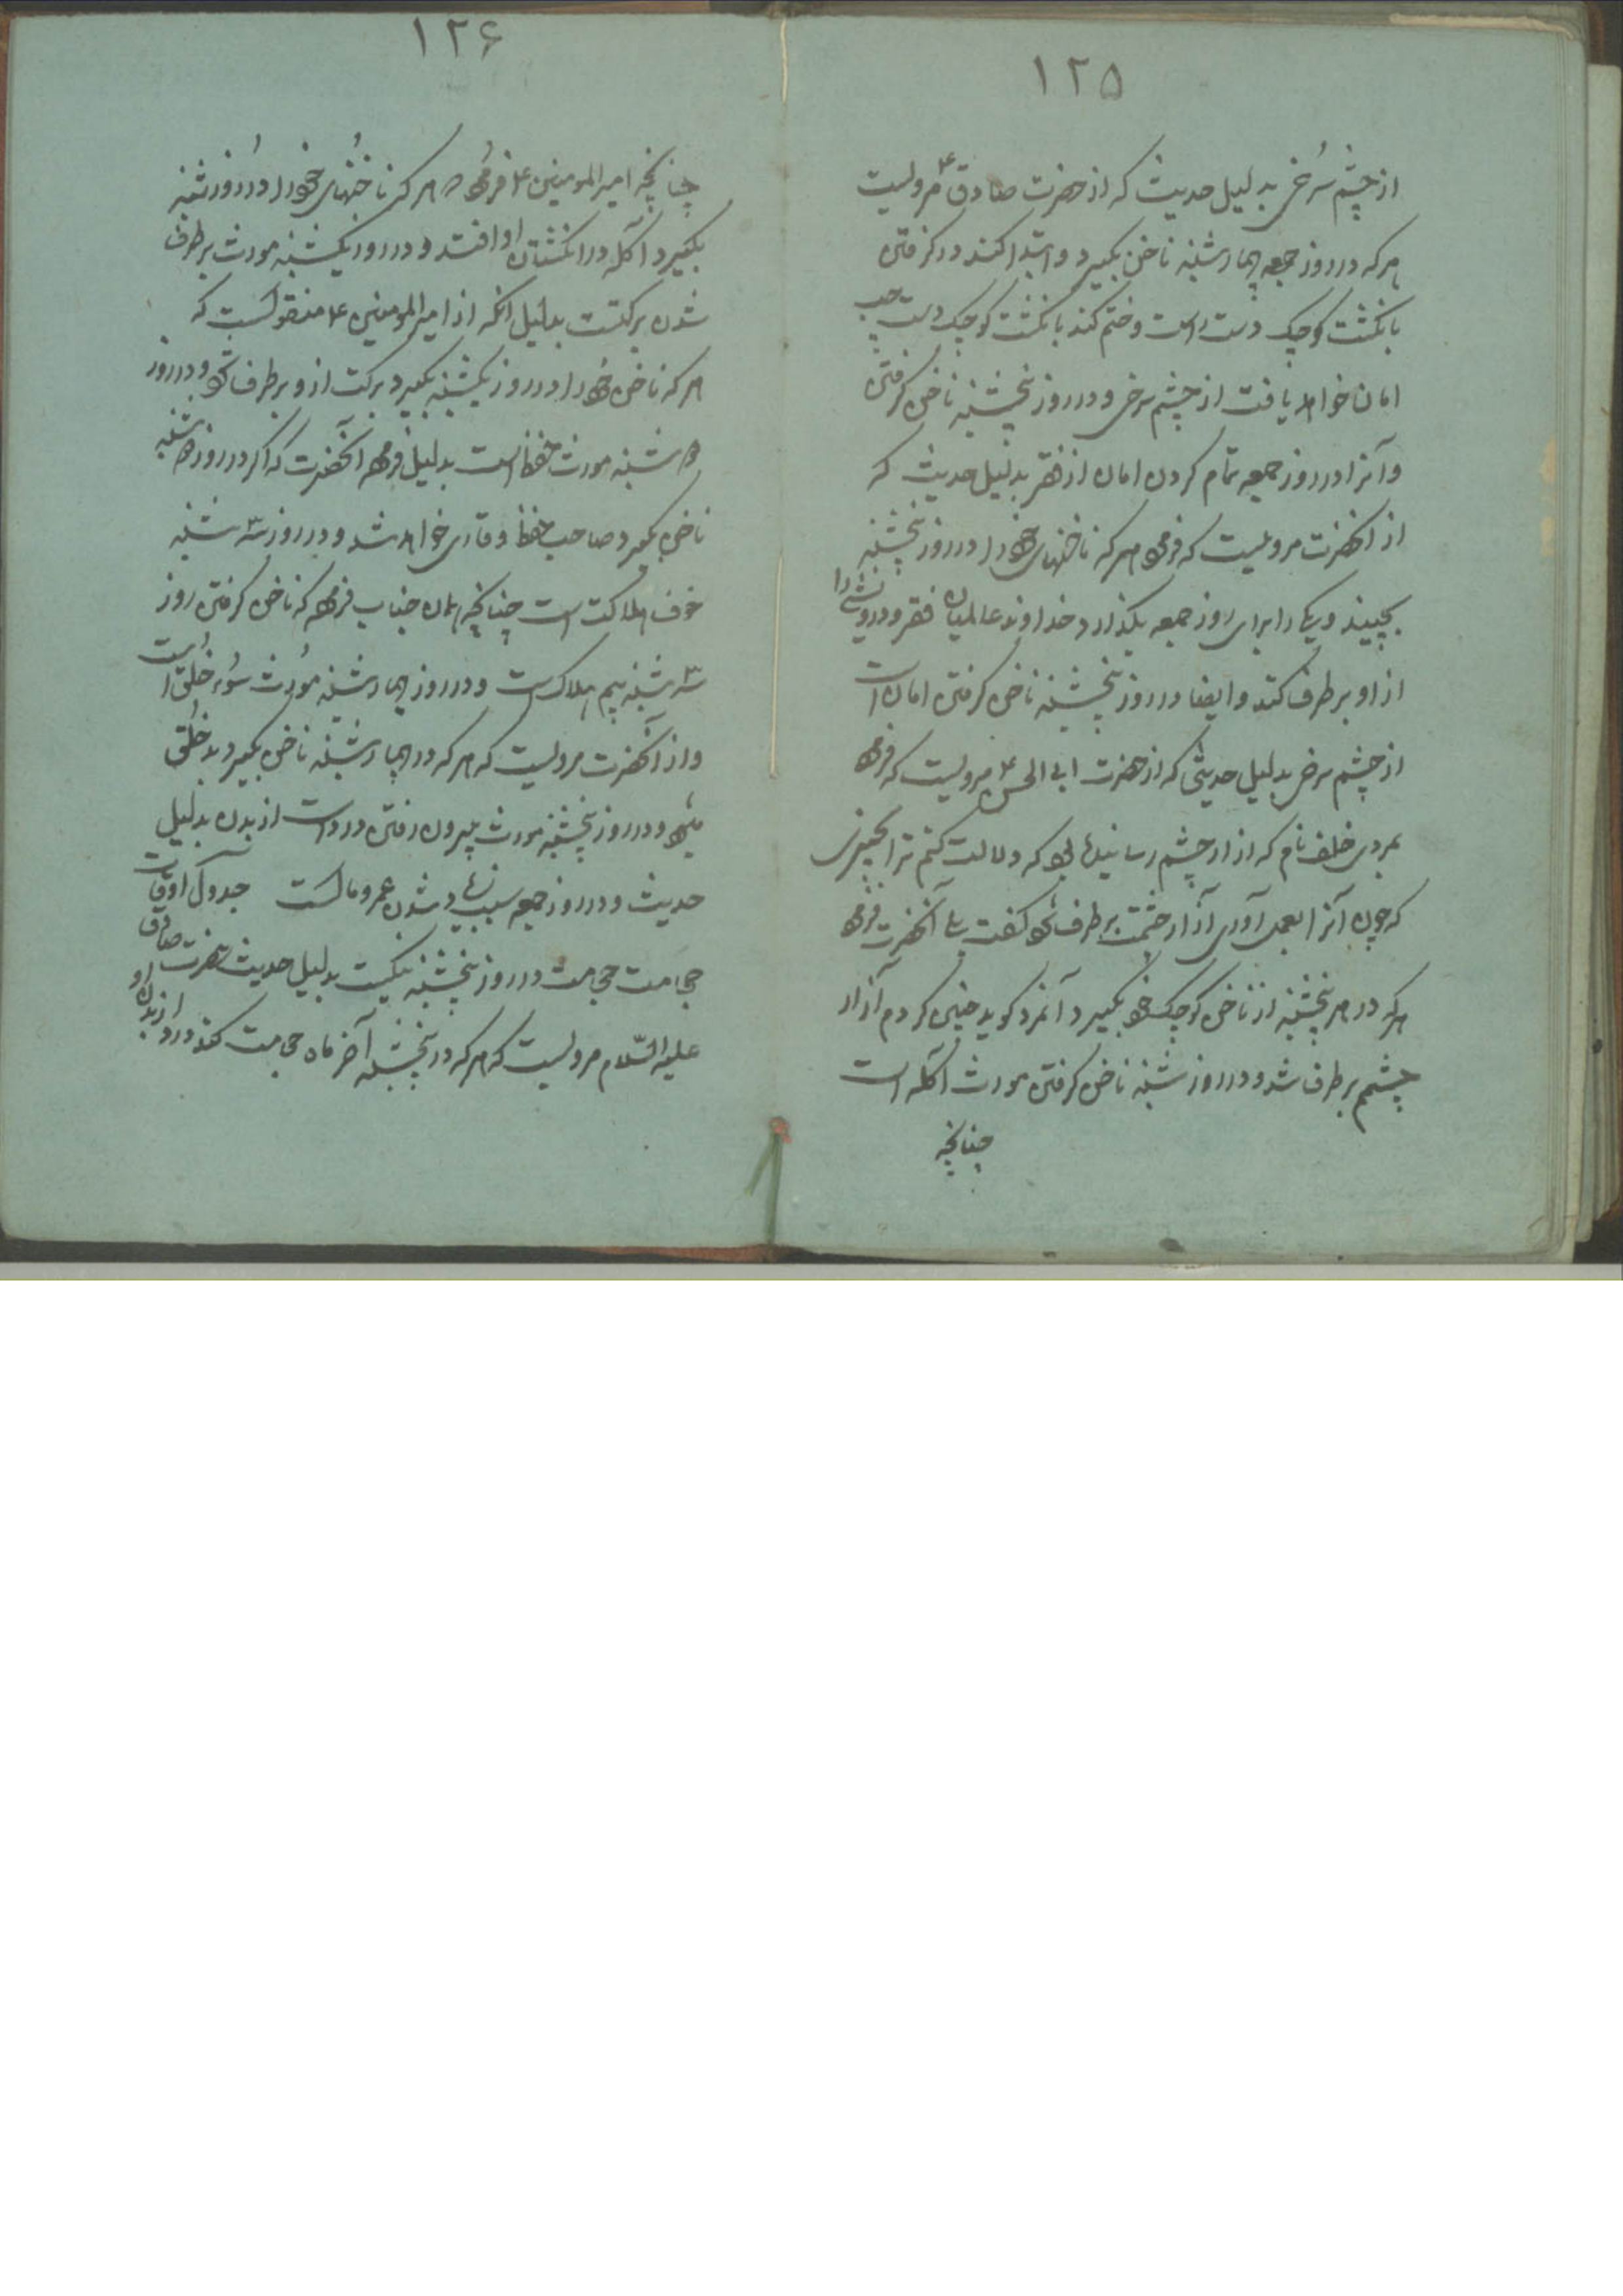 ۱۲۵
از چشم سرخی بدلیل حدیث که از حضرت صادق ع مرویست
هرکه در روز جمعه چهارشنبه ناخن بگیرد و ابتدا کند در گرفتن
بانگشت کوچک دست راست و ختم کند بانگشت کوچک دست چپ
امان خواهد یافت از چشم سرخی و در روز پنجشنبه ناخن گرفتن
و آنرا در روز جمعه تمام کردن امان از فقر بدلیل حدیث که
از انحضرت مرویست که فرمود هرکه ناخنهای خود را در روز پنجشنبه
بچیند و یکی را برای روز جمعه بگذارد خداوند عالمیان فقر و درویشی را
از او برطرف کند و ایضا در روز پنجشنبه ناخن گرفتن امان است
از چشم سرخی بدلیل حدیثی که از حضرت ابی الحسن ع مرویست که فرمود
بمردی خلف نام که ازار چشم رسانیده بود که دلالت کنم ترا بچیزی
که چون آنرا بعمل آوری آزار چشمت برطرف شود گفت بلی آنحضرت فرمود
هرکه در هر پنجشنبه از ناخن کوچک خود بگیرد آنمرد گوید چنین کردم آزار
چشمم برطرف شد و در روز شنبه ناخن گرفتن مورث آکله است
چنانچه
۱۲۶
چنانچه امیرالمومنین ع فرمود هرکه ناخنهای خود را در روز شنبه
بگیرد آکله در انگشتان او افتد و در روز یکشنبه مورث برطرف
شدن برکتست بدلیل انکه از امیرالمومنین ع منقولست که
هرکه ناخن خود را در روز یکشنبه بگیرد برکت از و برطرف شود و در روز
دوشنبه مورث حفظ است بدلیل فرموده آنحضرت که اگر در روز دوشنبه
ناخن بگیرد صاحب حفظ و قاری خواهد شد و در روز سه شنبه
خوف هلاکت است چنانچه همان جناب فرموده که ناخن گرفتن روز
سه شنبه بیم هلاک است و در روز چهارشنبه مورث سوء خلق است
و از آنحضرت مرویست که هرکه در چهارشنبه ناخن بگیرد بد خلق
میشود و در روز پنجشنبه مورث بیرون رفتن درد است از بدن بدلیل
حدیث و در روز جمعه سبب زیاد شدن عمر و مالست جدول اوقات
حجامت حجامت در روز پنجشنبه نیکست بدلیل حدیث حضرت صادق
علیه السّلام مرویست که هرکه در پنجشنبه آخر ماه حجامت کند درد از بدن او